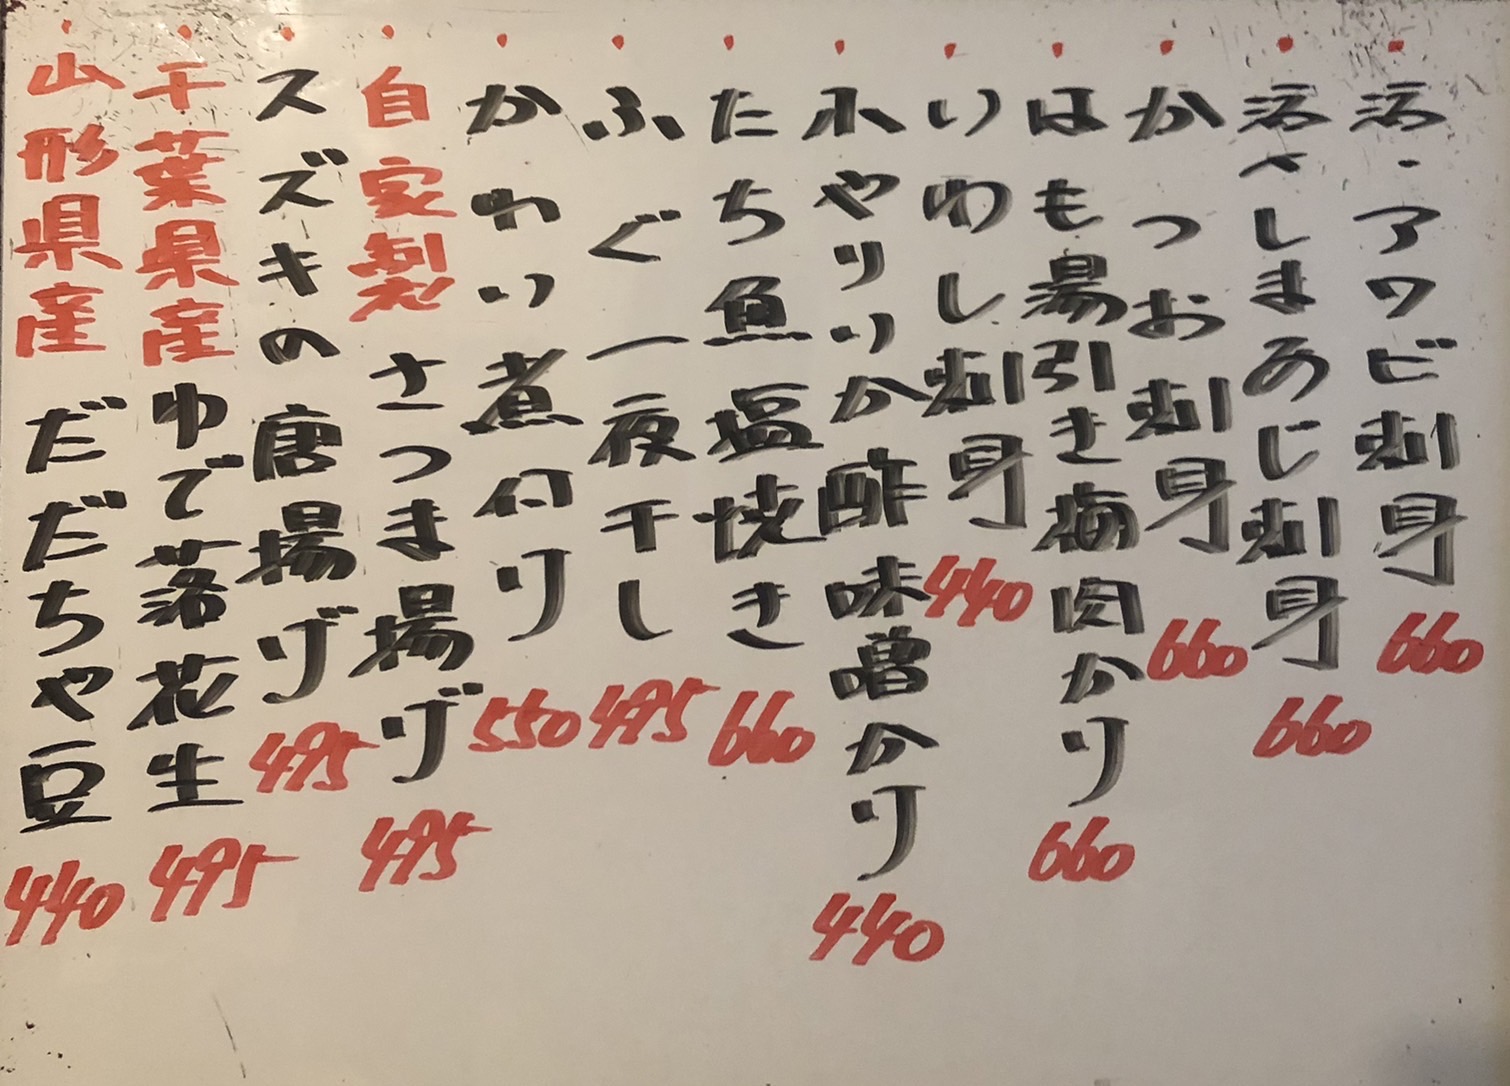 ・活・アワビ刺身 660
・活〆しまあじ刺身 660
・かつお刺身 660
・はも湯引き梅肉かり 660
・いわし刺身 440
・小やりいか酢味噌かり 440
・たち魚塩焼き 660
・ふぐ一夜干し 495
・かわい煮付り 550
・自家製 さつま揚げ 495
・スズキの唐揚げ 495
・千葉県産 ゆで落花生 495
・山形県産 だだちゃ豆 440